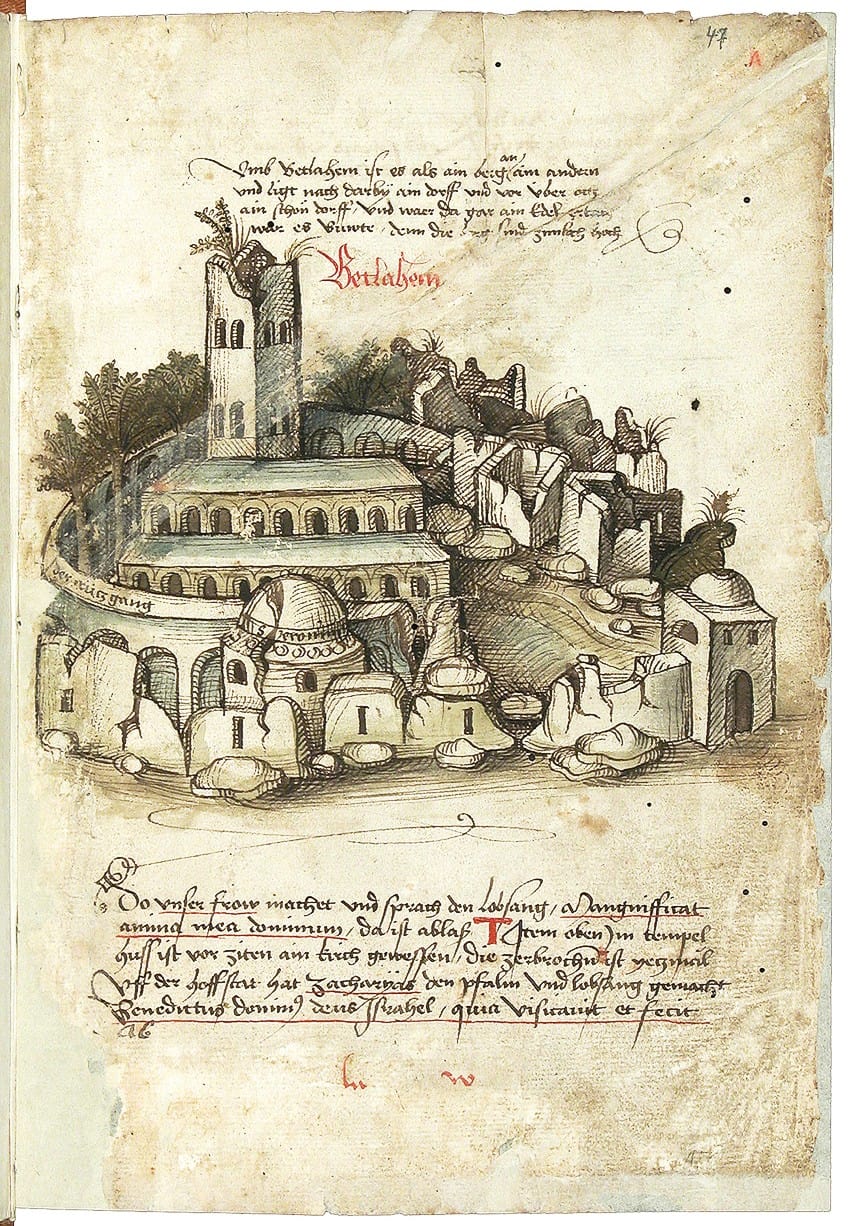 47
A
Umb Betlahem ist es als ain berg an aim andern
und ligt nach darbÿ ain dorff und vor uber
ain schön dorff, Und waer da gar ain Edel
war es buwte, denn die berg sind zimlich hoch
Betlahem
der crütz gang
S Jeronim
Do unser frow machet und sprach den lobsang, Mangnifficat
anima mea dominum, da ist ablaß T Item oben in tempel
huss ist vor ziten ain kirch gewessen, die zerbrochen ist yetzmal
Uff der hoffstat hat Zacharyas den psalm und lobsang gemacht
Benedictus dominus deus Israhel, quia visitavit et fecit